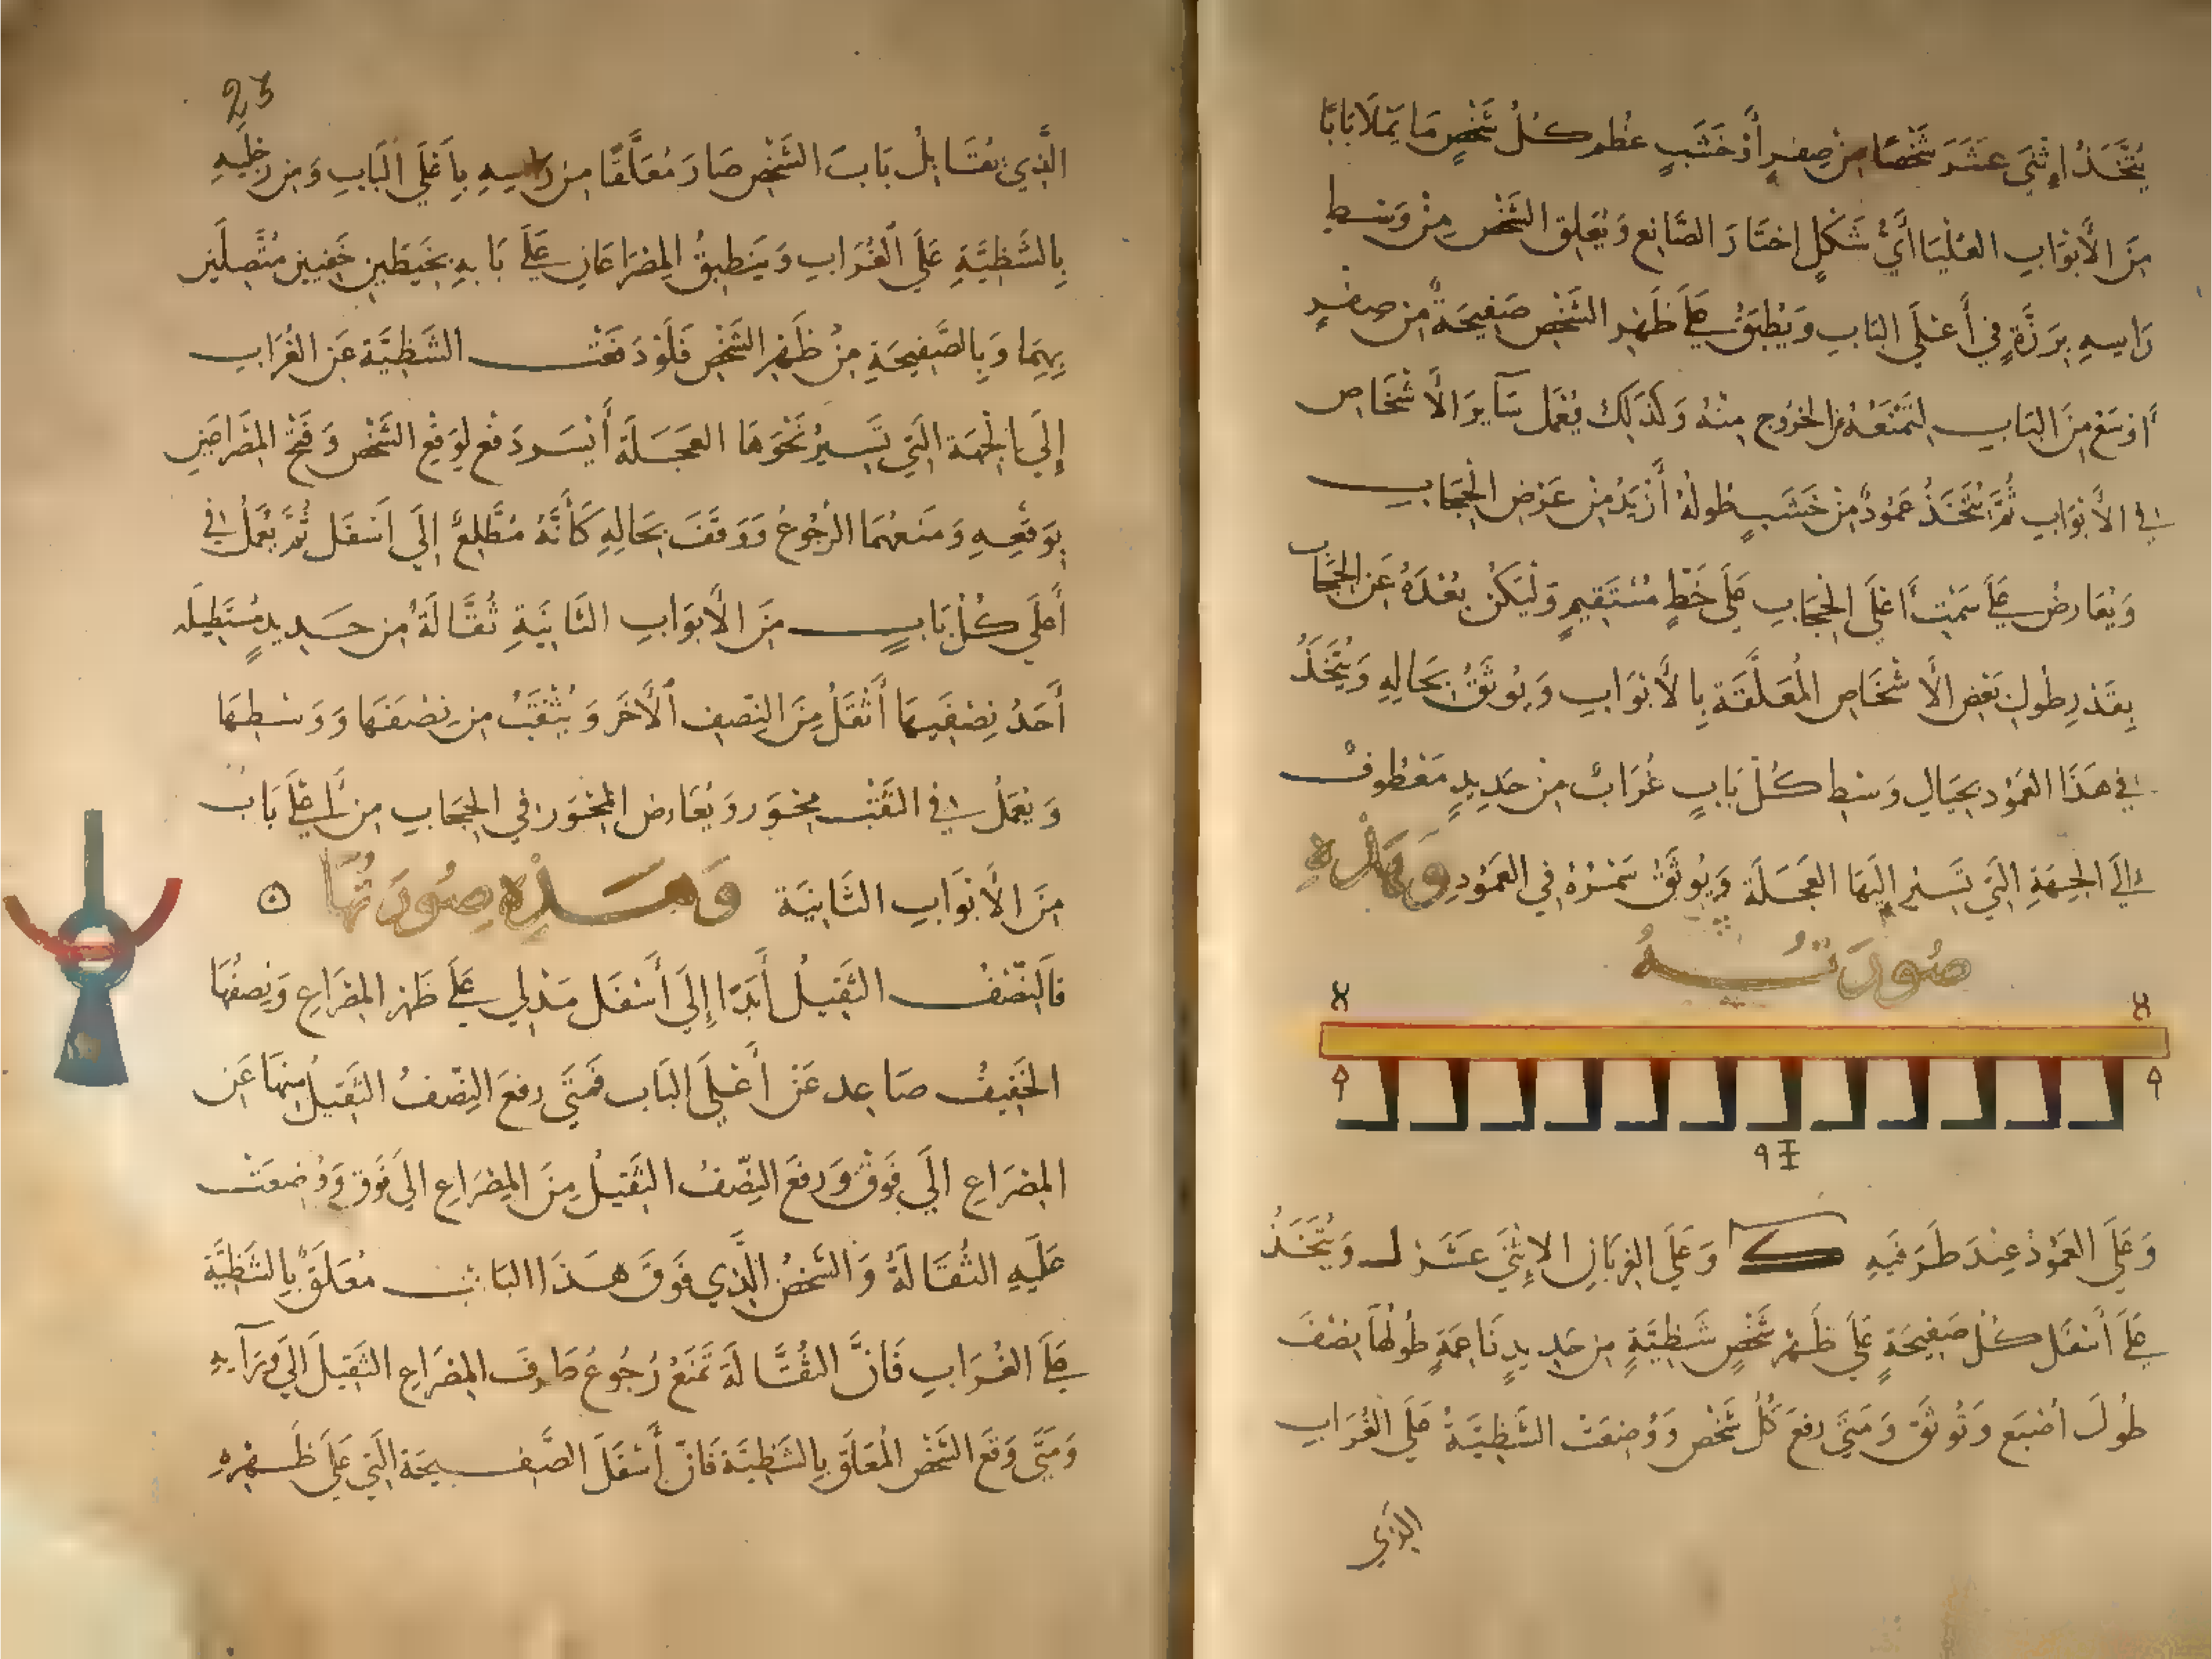 يُتَّخَذُ اِثْنَيْ عَشَرَ شَخْصًا مِنْ صِفرٍ أَوْ خَشَبٍ عُظْم كُلُ شَخْصٍ مَا يَمْلَا بَابًا
مِنَ الأَبْوَابِ العُلْيَا أَيُّ شَكْلٍ اِخْتَارَ الصَّانِع وَيُعَلِق الشَّخْص مِنْ وَسَطِ
رَاسِهِ بِرَزَّةٍ فِي أَعْلَى البَابِ وَيُطْبَقُ عَلَى ظَهْرِ الشَّخْصِ صَفِيحَةٌ مِن صفرٍ
أَوْسَعَ مِنَ البَابِ لتَمْنَعَهُ مِن الخُرُوجِ مِنْهُ وَكَذَلِكَ يُعْمَل سَآيِرَ الأَشْخَاصِ
في الأَبْوَابِ ثُمَّ يُتَّخَذُ عَمُودٌ مِنْ خَشَبٍ طُولُهُ أَزْيَدُ مِنْ عَرْضِ الْحِجَابِ
وَيُعَارضُ عَلَى سَمْتِ أَعْلَى الْحِجَابِ عَلَى خَطٍّ مُسْتَقِيمٍ وَلْيَكُنْ بُعْدَهُ عَنِ الْحِجَابِ
بِقَدْرِ طُولِ بَعْضِ الأَشْخَاصِ الْمُعَلَّقَةِ بِالأَبْوَابِ وَيُوثَقُ بِحَالِهِ وَيُتَّخَذُ
في هَذَا العَمُود بِحِيَالِ وَسْطِ كُلِّ بَابٍ غُرَابٌ مِنْ حَدِيدٍ مَعْطُوفٌ
إلَى الجِهَةِ الَّتِي تَسِيْرُ إِلَيْهَا العَجَلَة وَيُوثَقُ سَمْرُهُ فِي العَمُودِ وَهَذِهِ
صُورَتُهُ
وَعَلَى العَمُودْ عِنْدَ طَرَفَيهِ وَعَلَى الغِرْبَانِ الاثْنَيْ عَشَرَ لـ وَيُتَّخَذُ
عَلَى أَسْفَل كُلِّ صَفِيحَةٍ عَلَى ظَهْرِ شَخْصٍ شَظِيَّةٍ مِن حَدِيدٍ نَاعِمَةٍ طُولُهَا نِصْفَ
طُولَ أصْبَع وَتُوثَقَ وَمَتَى رفعَ كُلُّ شَخْصٍ وَوُضِعَتْ الشَّظِيَّةُ عَلَى الْغُرَابِ
الذي
23
الَّذِي يُقَابِلُ بَابَ الشَّخْصِ صَارَ مُعَلَّقًا مِن رَاسِهِ بِأَعْلَى الْبَابِ وَمِن رِجْلَيهِ
بِالشَّظِيَّةِ عَلَى الْغُرَابِ وَيَنْطَبِقُ المِصْرَاعَانِ عَلَى بَابِهِ بِخَيْطَينِ خَفِيَينِ مُتَّصِلَينِ
بِهِمَا وَبِالصَّفِيحَةِ مِنْ ظَهْرِ الشَّخْصِ فَلَوْ دَفَعْتَ الشَّظِيَّة عَنِ الغُرَابِ
إِلَى الْجِهَةِ الَّتِي تَسِيرُ نَحْوَهَا العَجَلَةَ أَيْسَر دَفع لَوَقَعَ الشَّخْصُ وَفَتْحَ المِصْرَاعَينِ
بِوَقْعِهِ وَمَنَعَهُمَا الرُّجُوعُ وَوَقَفَ بِحَالِهِ كَأَنَّهُ مُطَّلِعٌ إِلَى أَسْفَل ثُمَّ يُعْمَلُ في
أَعْلَى كُلِّ بَابٍ مِنَ الأَبْوَابِ الثَّانِيَةِ ثُقَّالَةٌ مِن حَدِيدٍ مُسْتَطِيلَه
أَحَدُ نِصْفَيهَا أَثْقَلُ مِنَ النِصْفِ الأَخَر وَيُثْقَبُ مِن نِصْفِهَا وَوَسْطِهَا
وَيُعْمَلُ في الثَّقْب مِحْوَر وَيُعَارض المِحْوَر في الحِجَابِ مِن أَعْلَى بَابٍ
مِنَ الأَبْوَابِ الثَّانِيَة وَهَذِهِ صُورَتُهَا
فَالنِّصْفُ الثَّقِيلُ أَبَدًا إِلَى أَسْفَل مَدْلِي عَلَى ظَهْرِ المِصْرَاعِ وَنِصْفُهَا
الخَفِيفُ صَاعِد عَنْ أَعْلَى البَاب فَمَتَى رفعَ النِّصْفُ الثَّقِيلُ مِنهَا عَن
المِصْرَاعِ الَى فَوْقَ وَرفعَ النِّصْفُ الثَّقِيلُ مِنَ المِصْرَاعِ الَى فَوْق وَوُضِعَتْ
عَلَيهِ الثُّقَّالَةُ وَالشَّخْصُ الَّذِي فَوْقَ هَذَا البَابِ مُعَلَقٌ بِالشَّظِيَّةِ
عَلَى الغُرَابِ فَانَّ الثُّقَّالَةَ تَمْنَعُ رُجُوعُ طَرف المِصْرَاعِ الثَّقِيلَ الَى وَرَآيهِ
وَمَتَى وَقَعَ الشَّخْص الْمُعَلَق بِالشَّظِيَّة فَانَّ أَسْفَلَ الصَّفِيحَة الَّتِي عَلَى ظَهْرِهِ